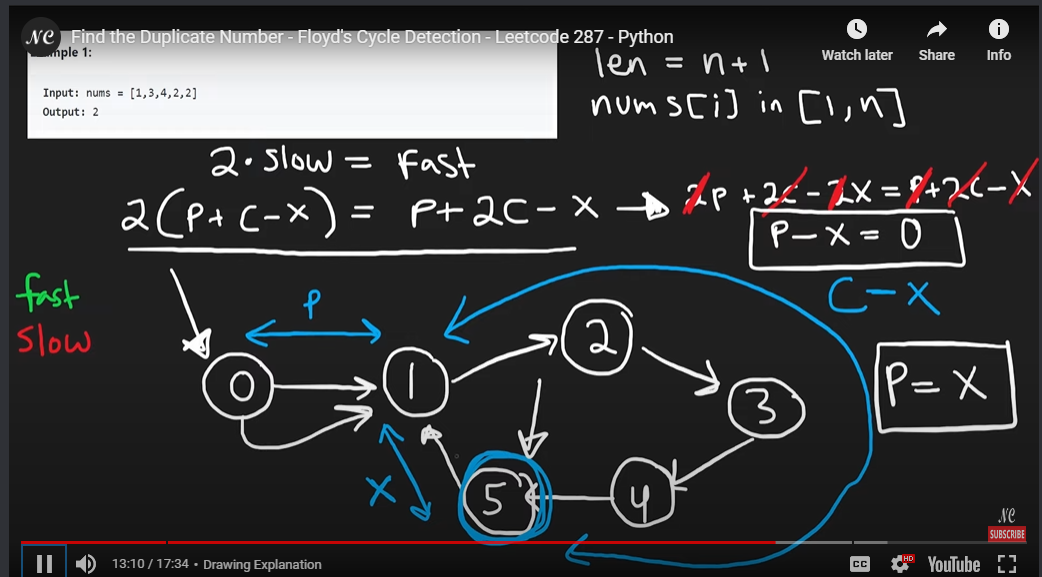 NC Find the Duplicate Number - Floyd's Cycle Detection - Leetcode 287 - Python
Watch later Share Info
mple 1:
Input: nums = [1,3,4,2,2]
Output: 2
len = n+1
nums[i] in [1,n]
2·slow = fast
2(P+C-X) = P+2C-X → 2P+2C-2X=P+2C-X
P-X=0
C-X
fast
slow
P
P=X
0 1 2 3
X
5 4
NC
SUBSCRIBE
13:10 / 17:34 • Drawing Explanation
CC HD YouTube